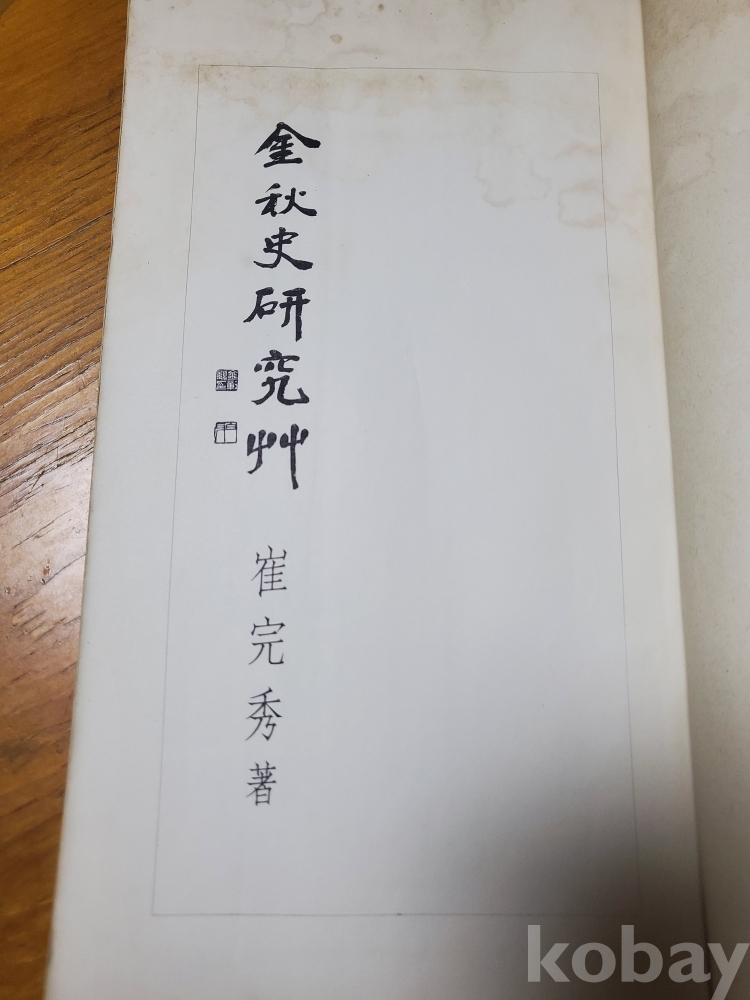 金秋史研究艸
崔完秀著
kobay